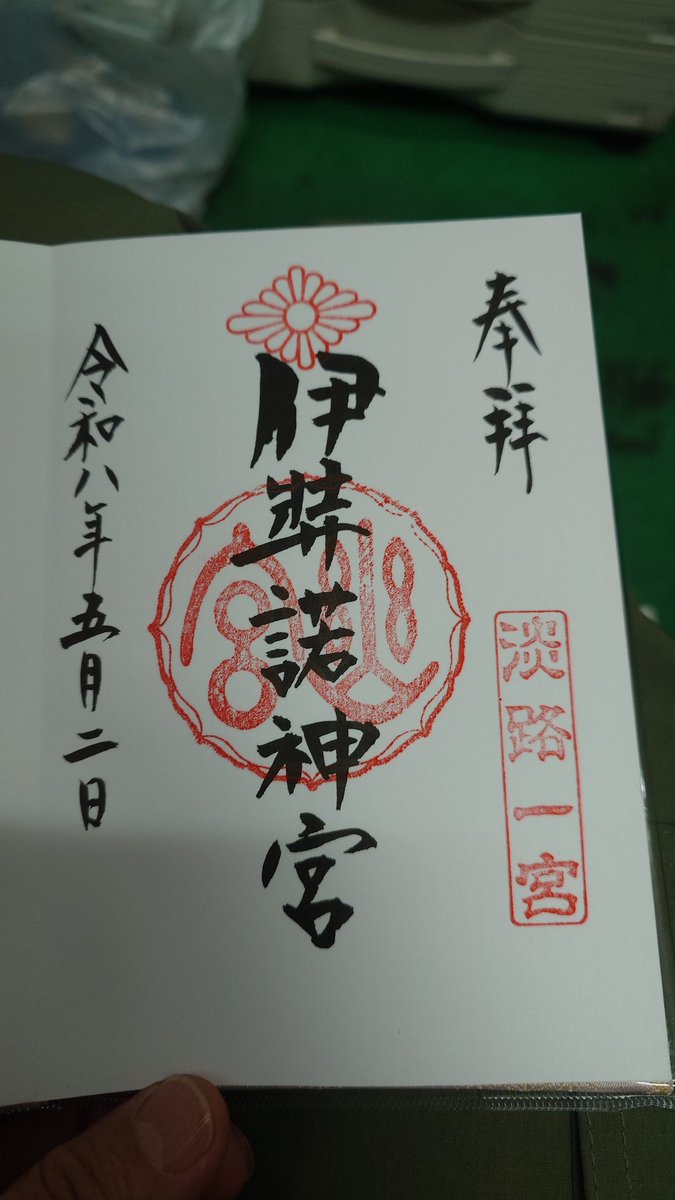 奉拝
淡路一宮
伊弉諾神宮
令和八年五月二日